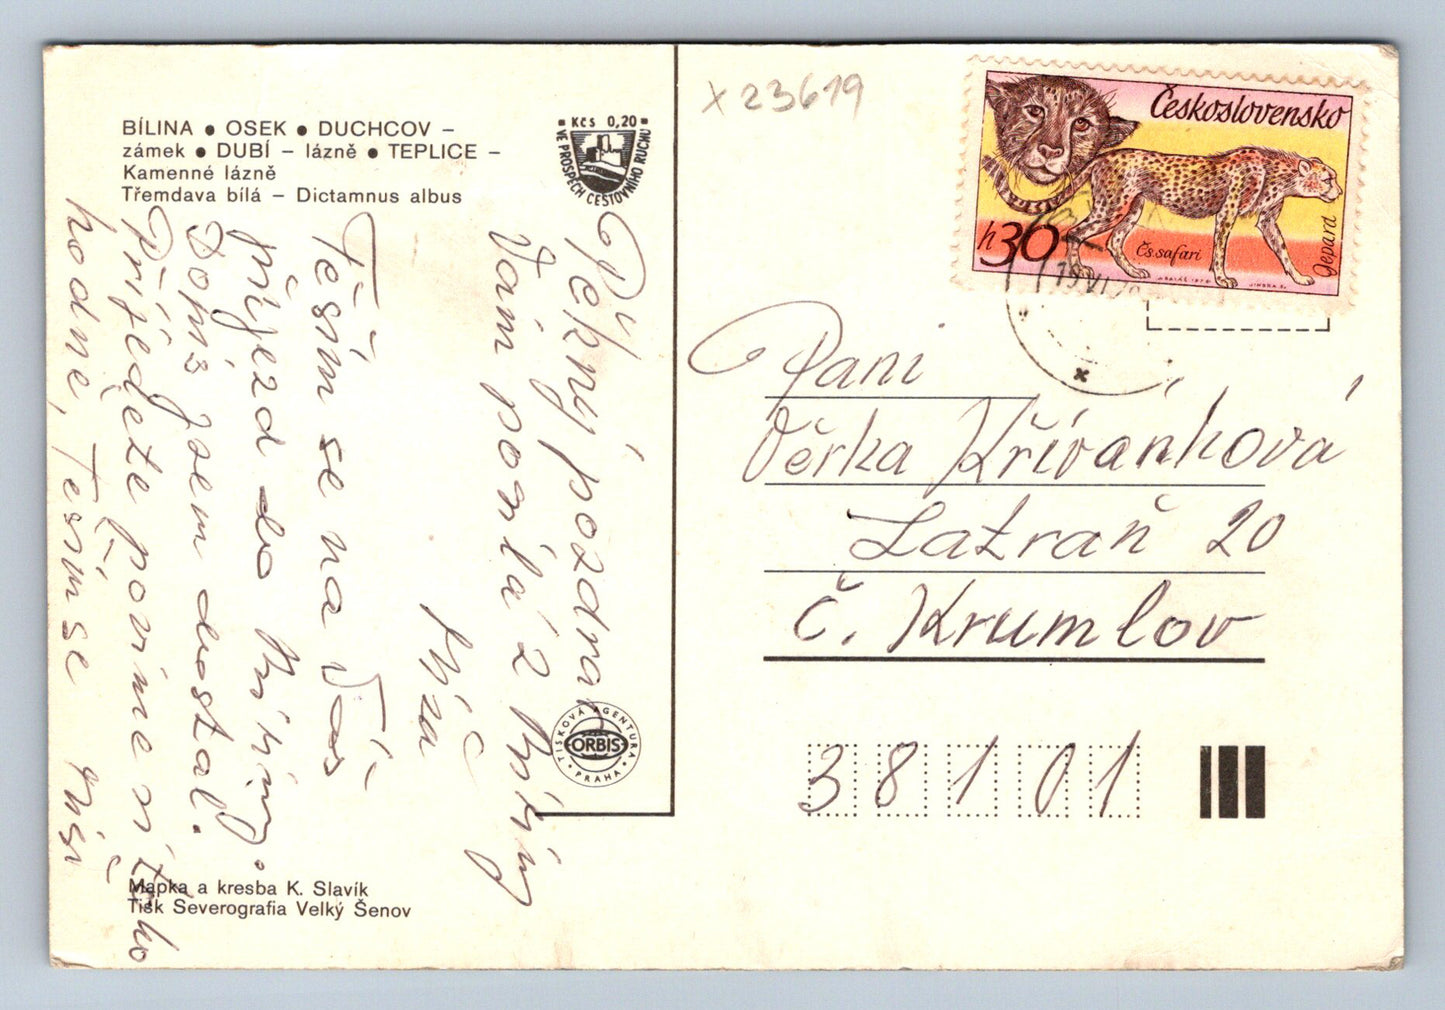 BÍLINA ● OSEK ● DUCHCOV –
zámek ● DUBÍ – lázně ● TEPLICE –
Kamenné lázně
Třemdava bílá – Dictamnus albus
■ Kčs 0,20 ■
VE PROSPĚCH CESTOVNÍHO RUCHU
x 23619
Československo
h30
Čs. safari
Gepard
19.VI.
Pěkný pozdrav
Vám posílá z Bíliny
Míza
Těším se na Váš
příjezd do Bíliny.
Dopis jsem dostal.
Přijedete povíme si toho
hodně, Těším se Míša
TISKOVÁ AGENTURA
ORBIS
• PRAHA •
Mapka a kresba K. Slavík
Tisk Severografia Velký Šenov
Paní
Věrka Křivánková
Latraň 20
Č. Krumlov
38101